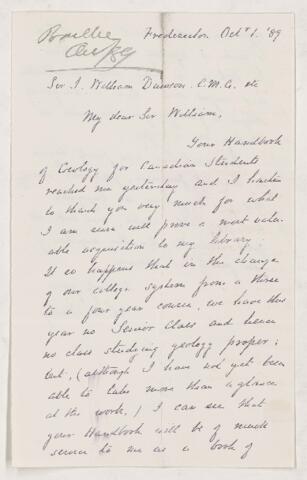 Bailey
Oct 89
Fredericton. Oct. 1. '89
Sir J. William Dawson. C.M.G. etc
My dear Sir William,
Your Handbook
of Geology for Canadian Students
reached me yesterday and I hasten
to thank you very much for what
I am sure will prove a most valu-
able acquisition to my library.
It so happens that in the change
of our college system from a three
to a four year course, we have this
year no Senior Class and hence
no class studying geology proper;
but, (although I have not yet been
able to take more than a glance
at the work,) I can see that
your Handbook will be of much
service to me as a book of